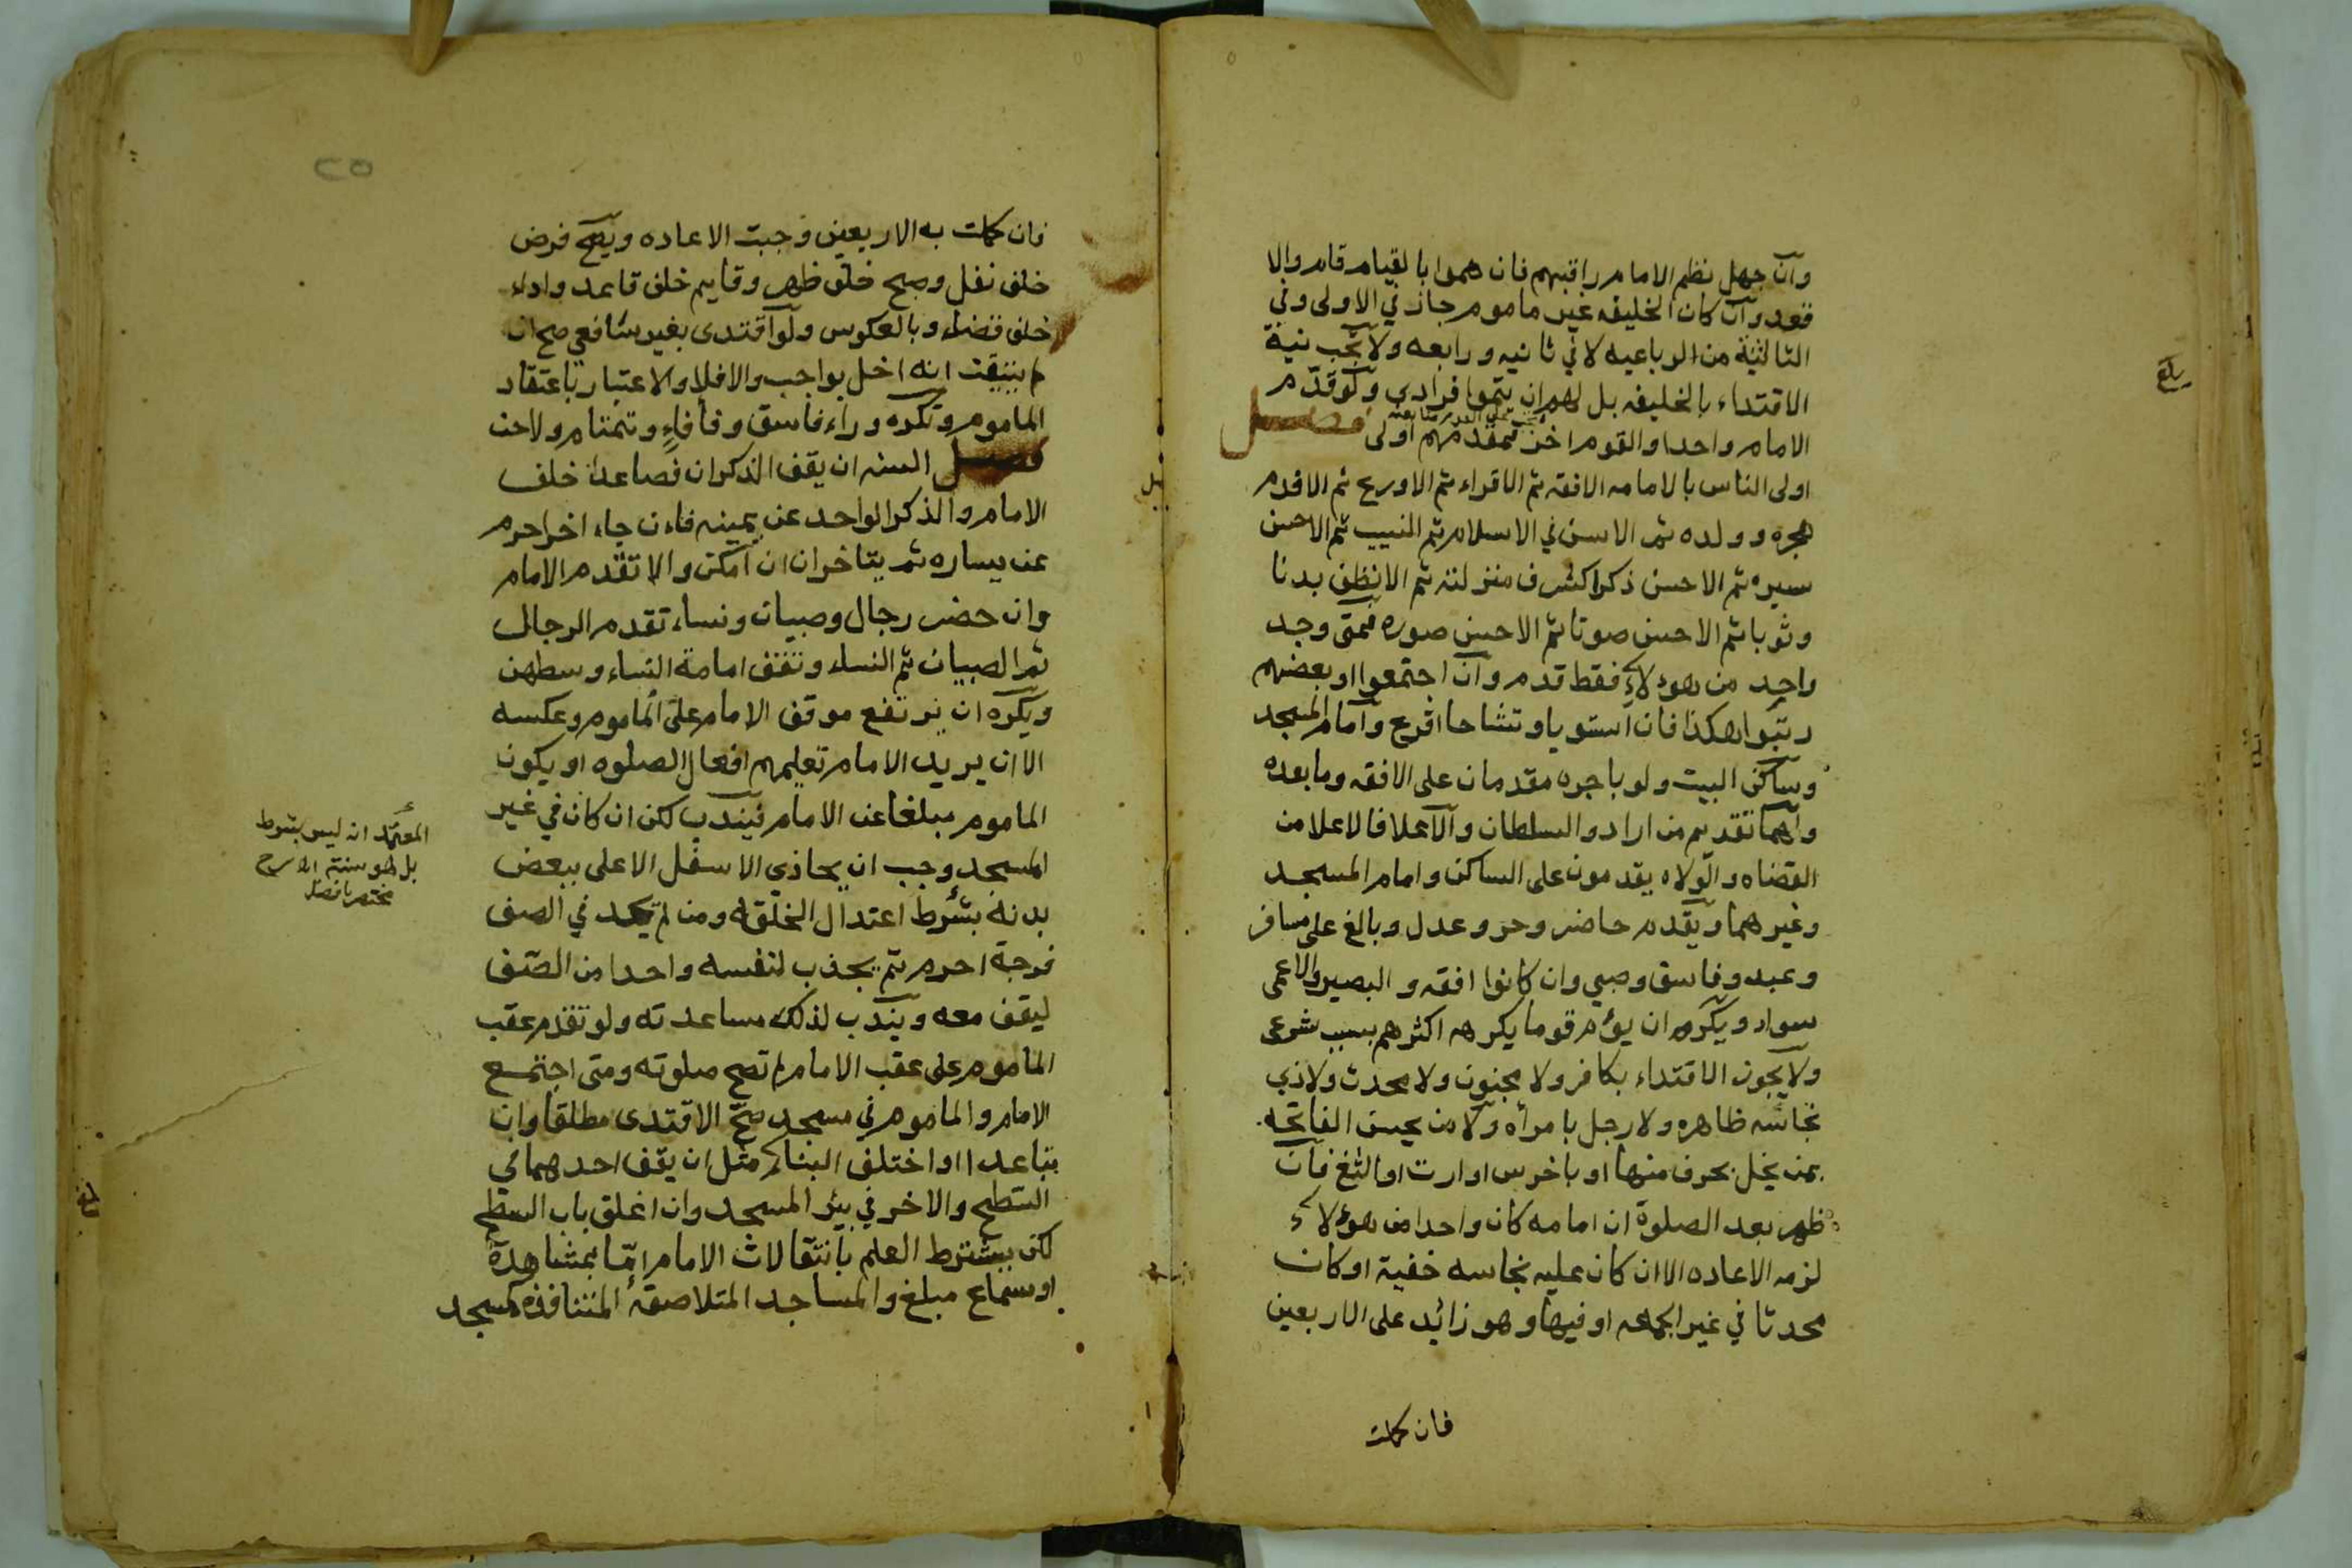 وان جهل نظم الامام راقبهم فان هموا بالقيام قام والا
قعد وان كان الخليفه غير ماموم جاز في الاولى وفي
الثالثية من الرباعيه لا في ثانيه ورابعه ولا تجب نية
الاقتداء بالخليفه بل لهم ان يتموا فرادى ولو قدم
الامام واحدا والقوم اخر فمقدمهم اولى فصل
اولى الناس بالامامه الافقه ثم الاقراء ثم الاورع ثم الاقدم
هجره وولده ثم الاسن في الاسلام ثم النسيب ثم الاحسن
سيره ثم الاحسن ذكرا ثم الانظف بدنا
وثوبا ثم الاحسن صوتا ثم الاحسن صوره فمتى وجد
واحد من هولاء فقط قدم وان اجتمعوا او بعضهم
رتبوا هكذا فان استويا وتشاحا اقرع وامام المسجد
وساكن البيت ولو باجره مقدمان على الافقه وما بعده
ولهما تقديم من ارادو السلطان والاعلا فالاعلا من
القضاه والولاه يقدمون على الساكن وامام المسجد
وغيرهما ويقدم حاضر وحر وعدل وبالغ على مسافر
وعبد وفاسق وصبي وان كانوا افقه والبصير والاعمى
سواء ويكره ان يؤم قوما يكرهه اكثرهم بسبب شرعى
ولا يجوز الاقتداء بكافر ولا مجنون ولا محدث ولا ذي
نجاسه ظاهره ولا رجل بامرأه ولا من يحسن الفاتحه
بمن يخل بحرف منها او باخرس او ارت او الثغ فان
ظهر بعد الصلوة ان امامه كان واحدا من هولاء
لزمه الاعاده الا ان كان عليه نجاسه خفية او كان
محدثا في غير الجمعه او فيها وهو زائد على الاربعين
فان كملت
بلغ
٢٥
فان كملت به الاربعين وجبت الاعاده ويصح فرض
خلف نفل وصبح خلف ظهر وقايم خلف قاعد واداء
خلف قضاء وبالعكوس ولو اقتدى بغير شافعي صح ان
لم يتيقن انه اخل بواجب والا فلا والاعتبار باعتقاد
الماموم وتكره وراء فاسق وفأفاء وتمتام ولاحن
فصل السنه ان يقف الذكران فصاعدا خلف
الامام والذكر الواحد عن يمينه فان جاء اخر احرم
عن يساره ثم يتاخران ان امكن والا تقدم الامام
وان حضر رجال وصبيان ونساء تقدم الرجال
ثم الصبيان ثم النساء وتقف امامة النساء وسطهن
ويكره ان يرتفع موقف الامام على الماموم وعكسه
الا ان يريد الامام تعليمهم افعال الصلوه او يكون
الماموم مبلغا عن الامام فيندب لكن ان كان في غير
المسجد وجب ان يحاذي الاسفل الاعلى ببعض
بدنه بشرط اعتدال الخلقه ومن لم يجد في الصف
فرجة احرم ثم يجذب لنفسه واحدا من الصف
ليقف معه ويندب لذلك مساعدته ولو تقدم عقب
الماموم على عقب الامام لم تصح صلوته ومتى اجتمع
الامام والماموم في مسجد صح الاقتدى مطلقا وان
تباعدا او اختلف البناء مثل ان يقف احدهما في
السطح والاخر في بئر المسجد وان اغلق باب السطح
لكن يشترط العلم بانتقالات الامام امّا بمشاهدة
او سماع مبلغ والمساجد المتلاصقه المتنافذه كمسجد
المعتمد انه ليس بشرط
بل هو سنة